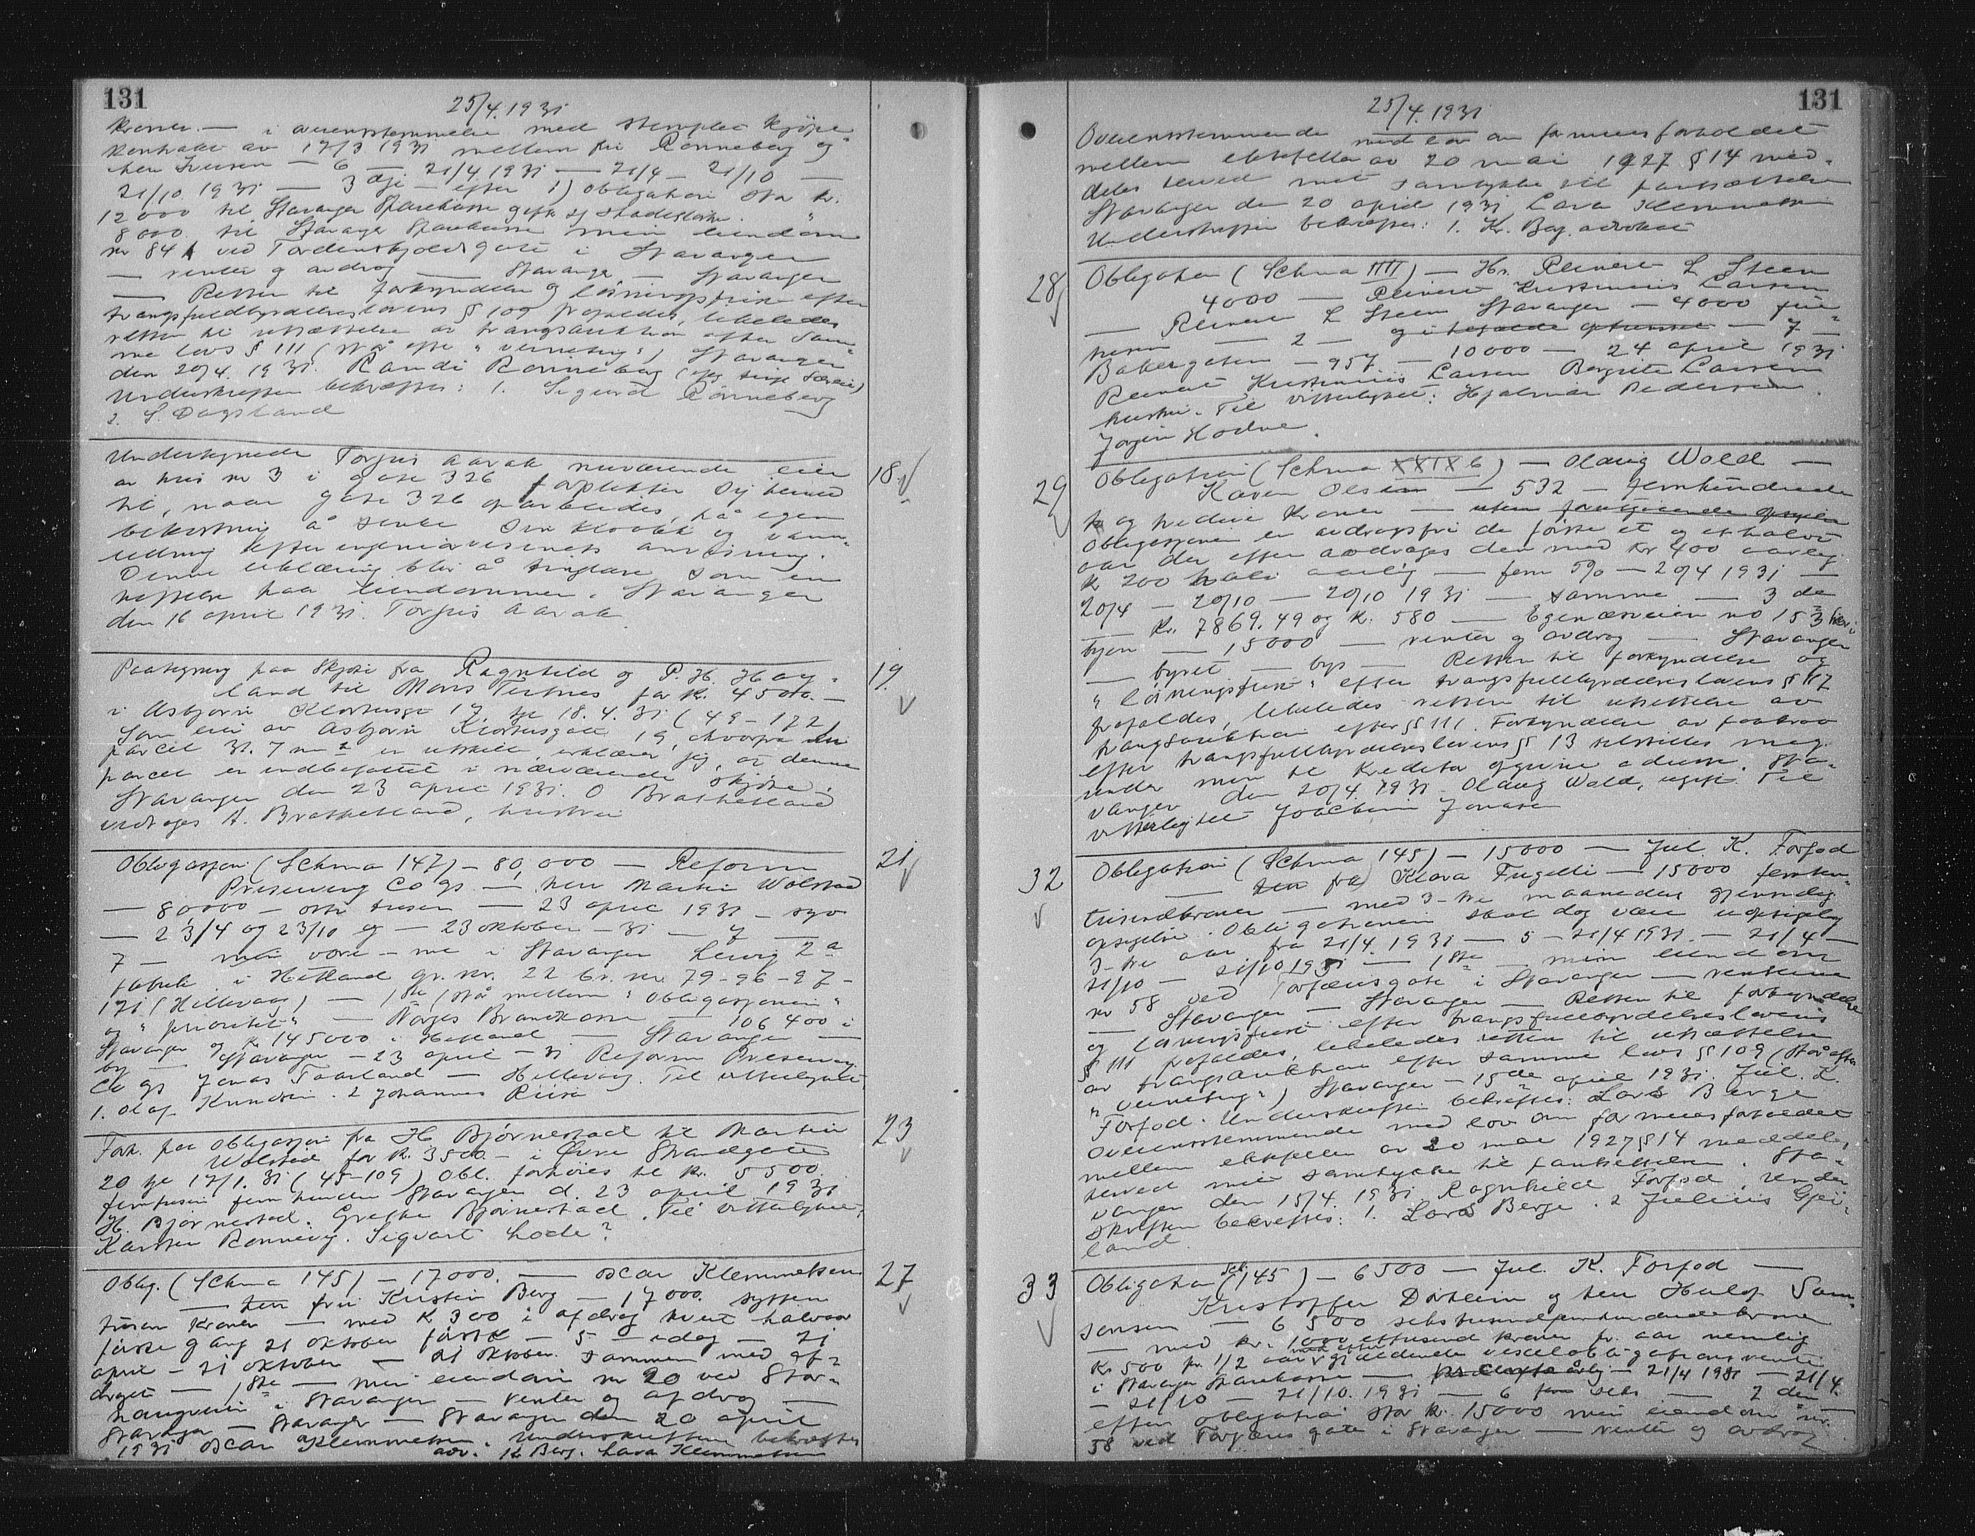 131
25/4. 1931
kroner. — i overensstemmelse med stemplet kjøpe
kontrakt av 17/3 1931 mellem fru Rønneberg og
herr Iversen — 6 — 21/4 1931 — 21/4 — 21/10 —
21/10 1931 — 3 dje — efter 1) obligation stor kr.
12000 til Stavanger Sparekasse
8000 til Stavanger Sparekasse min eiendom
nr 84 ved Tordenskjoldsgate i Stavanger
— renter og avdrag — Stavanger — Stavanger
— Retten til forkyndelse og løsningsfrist efter
tvangsfuldbyrdelseslovens § 109 frafaldes, likeledes
retten til utsættelse av tvangsauktion efter sam-
me lovs § 111 (stå efter "verneting") Stavanger
den 20/4. 1931. Randi Rønneberg
Underskriften bekræftes: 1. Sigurd Rønneberg
2. S. Dagsland
Undertegnede Torgeis Aarak nuværende eier
av hus nr 3 i gate 326 forplikter sig herved
til, naar gate 326 oparbeides, på egen
bekostning å senke sin kloakk og vann-
ledning efter ingeniørvesenets anvisning.
Denne erklæring blir å tinglese som en
heftelse paa eiendommen. Stavanger
den 16 april 1931. Torgeis Aarak
18.
Paategning paa skjøte fra Ragnhild og P. H. Høy-
land til Mons Tertnes for kr. 4500.—
i Asbjørn Klostersgt 17 tgl 18. 4. 31 (49-172)
Som eier av Asbjørn Klostersgate 19, hvorfra
parcel st. 7 m² er utskilt erklærer jeg, at denne
parcel er indbefattet i nærværende skjøte.
Stavanger den 23 april 1931. O Brakhetland
A. Brakhetland, hustru
19.
Obligasjon (Schma 147) — 80,000 — Reform
Preserving Co As — herr Martin Wolstad
— 80000 — otti tusen — 23 april 1931 — syv
— 23/4 og 23/10 — 23 oktober — 31 — 7 —
7 — våre — i Stavanger Lervig 2a
fabrik i Hetland gr. nr. 22 br. nr 79-96-97-
171 (Hillevaag) — 1ste (stå mellem "obligasjonen"
og "prioritet" — Norges Brandkasse — 106400 i
Stavanger og kr 145000 i Hetland — Stavanger —
by — Stavanger — 23 april — 31 Reform Preserving
Co As Jonas Taarland — Hillevaag. Til vitterlighet
1. Olaf Knudsen. 2 Johannes Riisa
21
Forh. paa obligasjon fra H Bjørnestad til Martin
Wolstad for kr. 3500.— i Øvre Strandgate
20 tgl 17/1. 31 (45-109) Obl. forhøies til kr. 5500
femtusen fem hundre Stavanger d. 23 april 1931
H. Bjørnestad. Grethe Bjørnestad. Til vitterlighet,
Karsten Rønnevig. Sigvart Lode?
23
Oblig. (Schma 145) — 17000. — Oscar Klemmetsen
— herr fru Kristin Berg — 17000 sytten
tusen kroner — med kr 300 i afdrag hvert halvaar
første gang 21 oktober førstk — 5 — idag — 21
april — 21 oktober — 21 oktober. Sammen med af-
draget — 1ste — min eiendom nr 20 ved Stor-
haugveien i Stavanger — renter og afdrag —
Stavanger — Stavanger — Stavanger den 20 april
1931 Oscar Klemmetsen. Underskriften bekræftes
adv. Kr Berg. Lava Klemmetsen
27
131
25/4. 1931
Overensstemmende med lov om formuesforholdet
mellem ektefeller av 20 mai 1927 § 14 med-
deles herved mit samtykke til pantsættelsen
Stavanger den 20 april 1931 Lava Klemmetsen
Underskriften bekræftes: 1. Kr. Berg. advokat
28
Obligation (Schma IIII) — Hr. Reinert L Steen
4000 — Reinert Kristinius Larsen
— Reinert L Steen Stavanger — 4000 fire-
tusen — 2 — og i tilfælde — 7 —
Bakergaten — 957 — 10000 — 24 april 1931
Reinert Kristinius Larsen Bergite Larsen
hustru. Til vitterlighet: Hjalmar Pedersen.
Jørgen Hodne.
29
Obligation (Schma XXIX 6) — Olaug Wold —
Karen Olsen — 532 — femhundrede
og tredive kroner — uten forutgaaende opsigelse
Obligasjonen er avdragsfri de første et og et halvt
aar derefter avdrages den med kr 400 aarlig
kr 200 halv aarlig — fem 5% — 20/4 1931 —
20/4 — 20/10 — 20/10 1931 — samme — 3 de
— kr. 7869.49 og kr. 580 — Egenæsveien no 153 her i
byen — 15000 — renter og avdrag — Stavanger
— byret — bys — Retten til forkyndelse og
"løsningsfrist" efter tvangsfuldbyrdelseslovens § 117
frafaldes, likeledes retten til utsettelse av
tvangsauktion efter § 111. Forkyndelse av forkrav
efter tvangsfullbyrdelseslovens § 13 tilstilles mig
under min til kreditor opgivne adresse. Sta-
vanger den 20/4. 1931. Olaug Wold, ugift. Til
vitterlighet Joachim Jonasen
32
Obligation (Schma 145) — 15000 — Jul. K. Forfod
— herr frk Klara Fugelli — 15000 femten-
tusindkroner — med 3-tre maaneders gjensidig
opsigelse. Obligationen skal dog være uopsigelig
3-tre aar fra 21/4. 1931 — 5 — 21/4 1931. — 21/4 —
21/10 — 21/10 1931 — 1ste — min eiendom
nr 58 ved Torfæusgate i Stavanger — renterne
— Stavanger — Stavanger — Retten til forkyndelse
og løsningsfrist efter tvangsfuldbyrdelseslovens
§ 111 frafaldes, likeledes retten til utsættelse
av tvangsauktion efter samme lovs § 109 (stå efter
"verneting") Stavanger — 15de april 1931. Jul. K.
Forfod. Underskriften bekræftes: Lars Berge
Overensstemmende med lov om formuesforholdet
mellem ektefeller av 20 mai 1927 § 14 meddeles
herved mit samtykke til pantsettelsen. Sta-
vanger den 15/4. 1931 Ragnhild Forfod. Under
skriften bekræftes: 1. Lars Berge. 2 Julius Gjei-
land.
33
Obligation (Sch. 145) — 6500 — Jul. K. Forfod —
Kristoffer Dørheim og herr Herlof Sam-
sonsen — 6500 sekstusindfemhundredekroner
— med kr. 1000 ettusind kroner pr. aar nemlig
kr 500 pr. 1/2 aar gjældende vekselobligationsrente
i Stavanger Sparekasse — 21/4 1931 — 21/4.
— 21/10 — 21/10. 1931 — 6 seks — 2 den —
efter obligation stor kr. 15000 min eiendom nr.
58 ved Torfæus gate i Stavanger — renter og avdrag